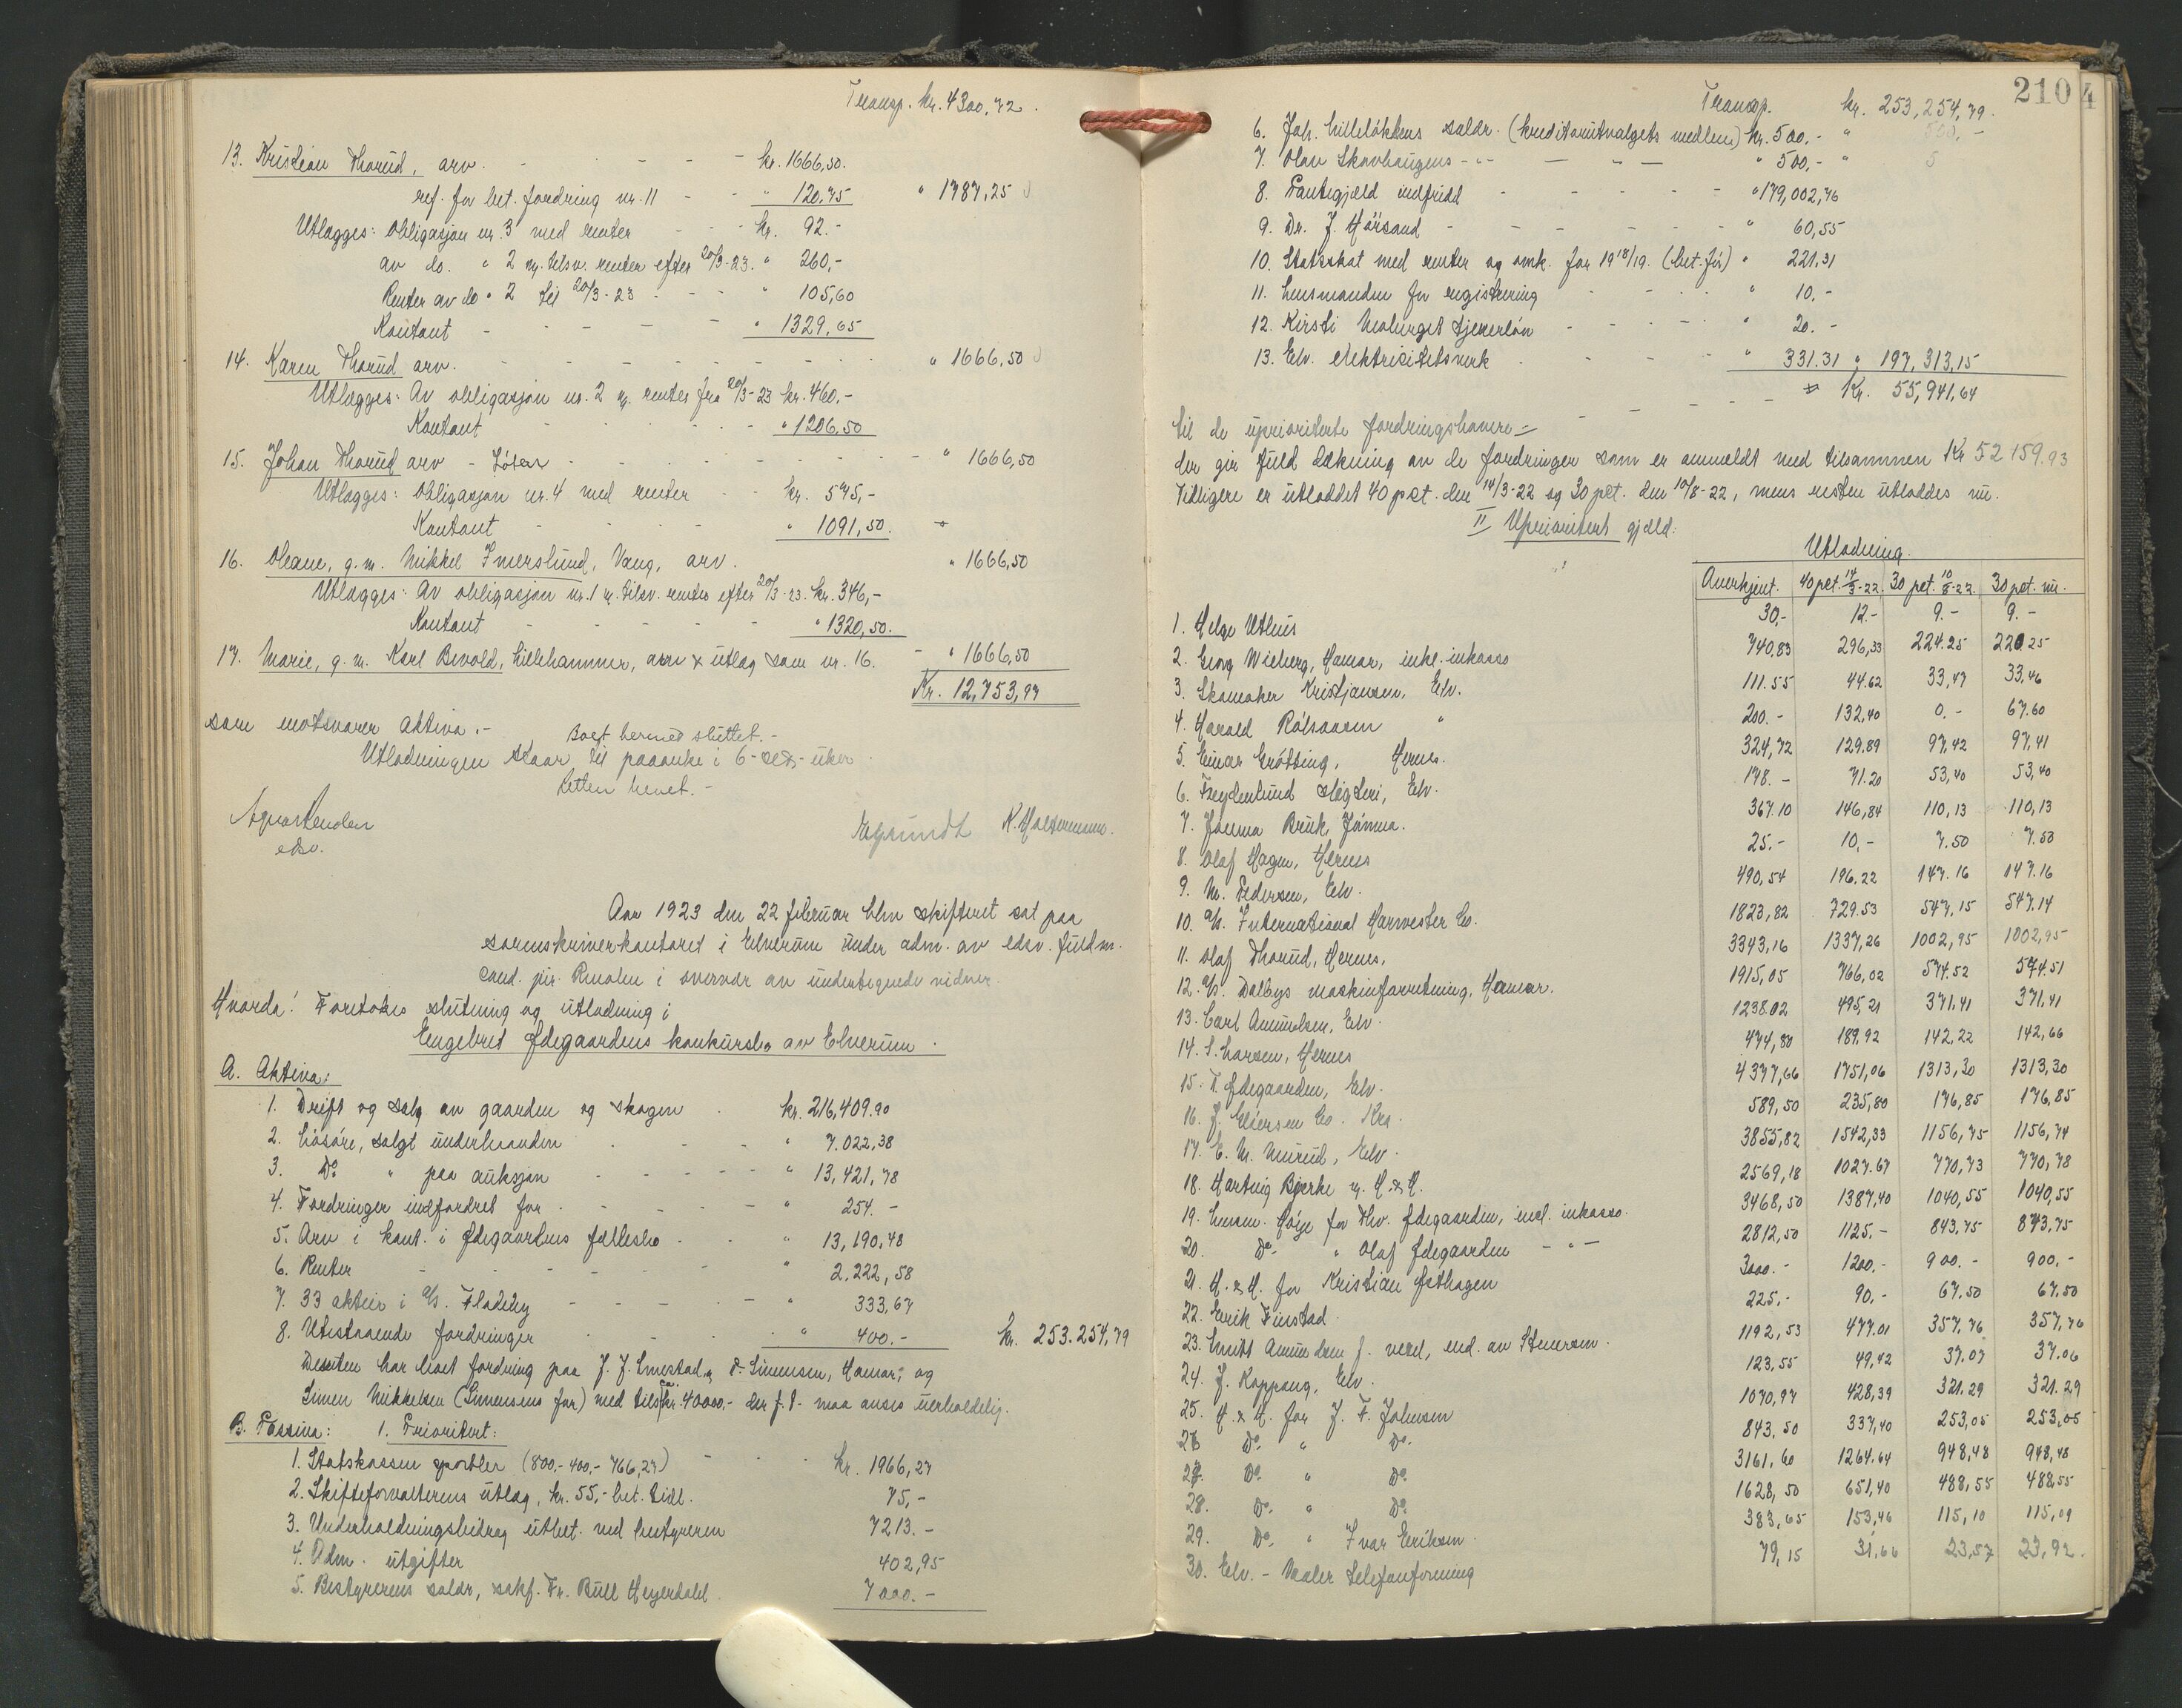 Transp. kr. 4300,72.
13. Kristian Thorud, arv. - - - - kr. 1666,50.
ref. for bet. fordring nr. 11 - - " 120,75 " 1787,25
Utlægges: Obligasjon nr. 3 med renter - - - kr. 92.-
av do. " 2 m. tilsv. renter efter 20/3-23. " 260,-
Renter av do " 2 til 20/3-23 - - - " 105,60
Kontant - - - - - " 1329,65
14. Karen Thorud arv. - - - - - - - - " 1666,50
Utlægges: Av obligasjon nr. 2 m. renter fra 20/3-23 kr. 460,-
Kontant - - - - - " 1206,50
15. Johan Thorud arv - Löten - - - - - - - " 1666,50
Utlægges: Obligasjon nr. 4 med renter - - kr. 575,-
Kontant - - - - " 1091,50.
16. Oleane, g.m. Mikkel Imerslund, Vang, arv. " 1666,50
Utlægges: Av obligasjon nr. 1 m. tilsv. renter efter 20/3-23. kr. 346,-
Kontant - - - - - " 1320,50.
17. Marie, g.m. Karl Bevold, Lillehammer, arv & utlæg som nr. 16. - " 1666,50
Kr. 12,753,97
som motsvarer aktiva.- Boet hermed sluttet.-
Utlodningen staar til paaanke i 6 - seks - uker.
Retten hevet.-
edsv.
K. Haltermann.
Aar 1923 den 22 februar blev skifteret sat paa
sorenskriverkontoret i Elverum under adm. av edsv. fuldm.
cand. jur. Rinolen i overvær av undertegnede vidner.
Hvorda: Foretokes slutning og utlodning i
Engebret Ødegaardens konkursbo av Elverum.
A. Aktiva:
1. Drift og salg av gaarden og skogen . kr. 216,409.90
2. Lösöre, solgt underhaanden - - - " 7.022,38
3. Do " paa auksjon - - - - - " 13,421,78
4. Fordringer indfordret for - - - - " 254.-
5. Arv i kont. i Ødegaardens fællesbo - - " 13,190,48
6. Renter - - - - - - " 2.222,58
7. 33 aktier i A/S. Fladeby - - - - - " 333,67
8. Utestaaende fordringer - - - - " 400.- kr. 253.254,79
Desuten har boet fordring paa J. J. Smestad, D. Simensen, Hamar, og
Simen Mikkelsen (Simensens far) med tils. ca. kr. 40000.- der f. t. maa anses uerholdelig.
B. Passiva: 1. Prioritert:
1. Statskassen sportler (800,- 400,- 766,27) - - - kr. 1966,27
2. Skifteforvalterens utlæg, kr. 55,- bet. tidl. 75,-
3. Underholdningsbidrag utbet. ved bestyreren 7213.-
4. Adm. utgifter 402,95
5. Bestyrerens salær, sakf. Fr. Bull Heyerdahl. 7000.-
210
4
Transp. kr. 253,254,79.
6. Joh. Lilleløkkens salær. (kreditorutvalgets medlem) kr. 500,- "
7. Olav Skavhaugens - " - - " - " 500,- "
8. Pantegjæld indfridd - - - - - - " 179,002,76
9. Dr. J. Hörsand - - - - - - - " 60,55
10. Statsskat med renter og omk. for 1918/19. (bet. før) " 221,31
11. Lensmanden for registrering - - - - " 10.-
12. Kirsti Moburget tjenerløn - - - - - " 20.-
13. Elv. elektricitetsverk . . - - " 331.31 " 197,313,15
= Kr. 55,941,64
til de uprioriterte fordringshavere -
der gir fuld dækning av de fordringer som er anmeldt med tilsammen Kr 52 159.93
Tidligere er utloddet 40 pct. den 14/3-22 og 30 pct. den 10/8-22, mens resten utloddes nu.
II Uprioritert gjæld:
Utlodning.
Anerkjent. 40 pct. 14/3-22. 30 pct. 10/8-22 30 pct. nu.
1. Helge Uthus 30,- 12.- 9.- 9.-
2. Georg Wieberg, Hamar, inkl. inkasso 740,83 296,33 224.25 220.25
3. Skomaker Kristjansen, Elv. 111.55 44.62 33,47 33,46
4. Harald Rølsaasen " 200.- 132,40 0.- 67.60
5. Einar Grötting, Hernes. 324,72 129.89 97,42 97,41
6. Freydenlund slagteri, Elv. 178.- 71.20 53,40 53,40
7. Jømna Bruk, Jømna. 367.10 146,84 110,13 110,13
8. Olaf Hagen, Hernes 25.- 10,- 7.50 7.50
9. M. Pedersen, Elv. 490,54 196.22 147.16 147.16
10. A/S. International Harvester Co. 1823,82 729.53 547,15 547.14
11. Olaf Thorud, Hernes, 3343,16 1337,26 1002,95 1002,95
12. A/S. Dalbys maskinforretning, Hamar. 1915,05 766,02 574.52 574.51
13. Carl Amundsen, Elv. 1238.02 495,21 371.41 371,41
14. S. Larsen, Hernes 474,80 189.92 142,22 142,66
15. T. Ødegaarden, Elv. 4377,66 1751,06 1313,30 1313,30
16. J. Eliersen Co. Kra. 589,50 235,80 176,85 176,85
17. E. M. Murud, Elv. 3855,82 1542,33 1156,75 1156,74
18. Hartvig Bjerke v. H. & H. 2569,18 1027.67 770,73 770,78
19. Lensm. Høye for Thv. Ødegaarden, incl. inkasso. 3468,50 1387,40 1040,55 1040,55
20. Do. " Olaf Ødegaarden - " - 2812,50 1125.- 843,75 843,75
21. H. & H. for Kristian Østhagen 3000.- 1200.- 900.- 900,-
22. Erik Finstad 225,- 90,- 67,50 67,50
23. Knut Amundsen f. vexel, end. av Stenersen. 1192,53 477.01 357,76 357,76
24. J. Koppang, Elv. 123,55 49,42 37.07 37.06
25. H. & H. for J. F. Johnsen 1070,97 428,39 321.29 321.29
26 Do. " Do. 843,50 337,40 253,05 253,05
27. Do. " Do. 3161,60 1264.64 948,48 948,48
28. Do. " Do. 1628,50 651,40 488,55 488,55
29. Do. " Ivar Eriksen 383,65 153,46 115,10 115,09
30. Elv. - Vaaler telefonforening 79,15 31,66 23,57 23,92.